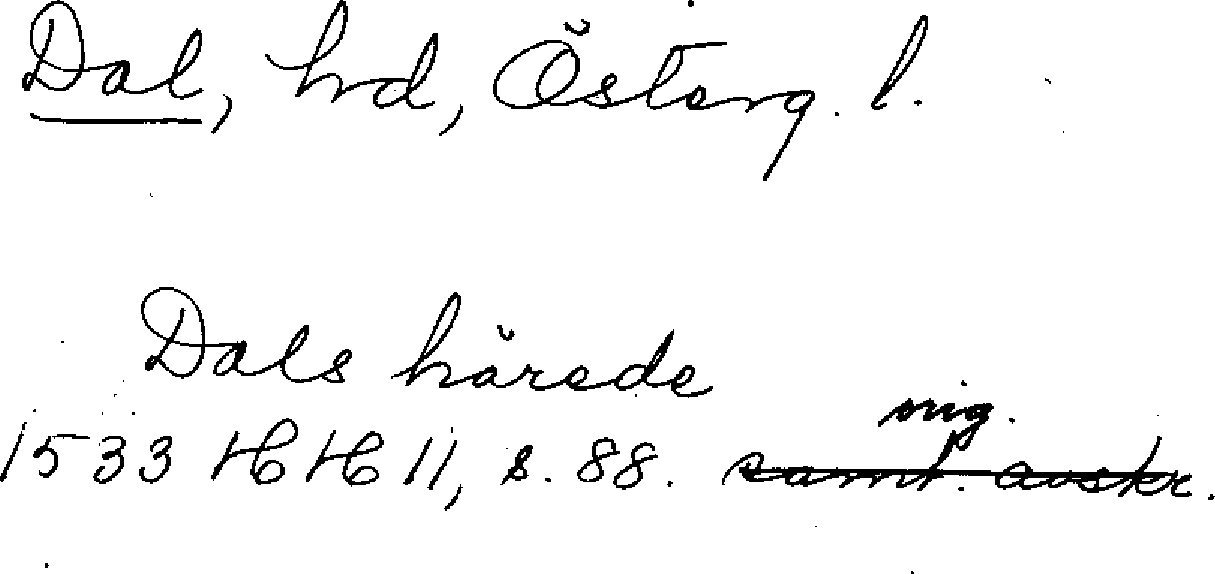 Dal, hd, Österg. l.
Dals härede
orig.
1533 HH 11, s. 88. samt. avskr.